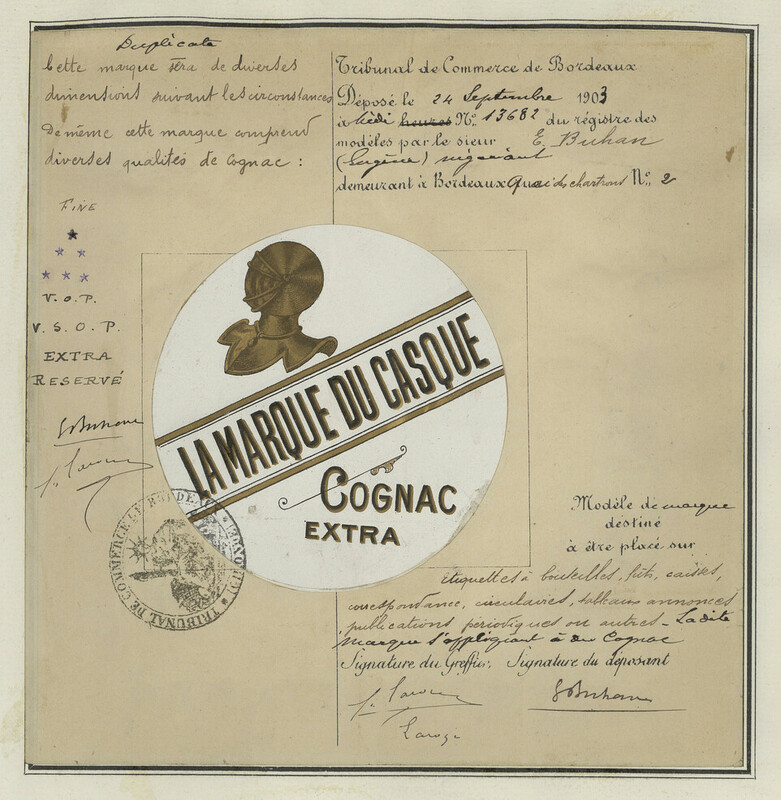 Duplicata
Cette marque sera de diverses
dimensions suivant les circonstances
De même cette marque comprend
diverses qualités de Cognac :
FINE
V.O.P.
V.S.O.P.
EXTRA
RESERVÉ
EBuhan
Tribunal de Commerce de Bordeaux
Déposé le 24 Septembre 1903
à Midi heures No. 13682 du régistre des
modèles par le sieur E. Buhan
(Eugène) négociant
demeurant à Bordeaux Quai des chartrons No. 2
LA MARQUE DU CASQUE
COGNAC
EXTRA
TRIBUNAL DE COMMERCE DE BORDEAUX
Modèle de marque
destiné
à être placé sur
étiquettes à bouteilles, fûts, caisses,
correspondance, circulaires, tableaux annonces
publications périodiques ou autres - La dite
marque s'appliquant à du Cognac
Signature du Greffier, Signature du déposant
EBuhan